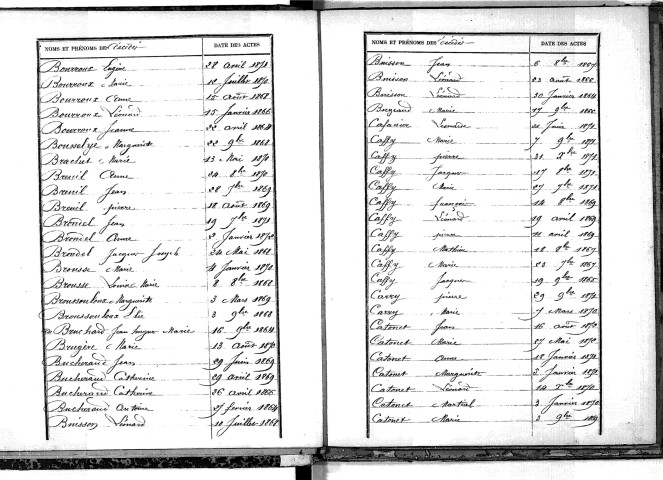 NOMS ET PRÉNOMS DES décédés DATE DES ACTES
Bourroux Eugène 28 avril 1871
Bourroux Marie 12 Juillet 1870
Bourroux Anne 15 août 1868
Bourroux Léonard 15 Janvier 1866
Bourroux Jeanne 22 avril 1864
Bousselye Marguerite 22 9bre 1868
Brachet Marie 13 Mai 1870
Breuil Anne 24 8bre 1870
Breuil Jean 28 7bre 1869
Breuil pierre 18 août 1869
Broudel Jean 19 7bre 1871
Broudel Anne 2 Janvier 1872
Broudel Jacques Joseph 24 Mai 1868
Brousse Marie 4 Janvier 1870
Brousse Louise Marie 8 8bre 1868
Broussouloux Marguerite 3 Mars 1869
Broussouloux Elie 3 9bre 1868
Bruchard Jean Marie 16 9bre 1864
Brugère Marie 13 août 1870
Bucheraud Jean 29 Juin 1869
Bucheraud Catherine 29 avril 1869
Bucheraud Catherine 26 avril 1866
Bucheraud Antoine 27 février 1864
Buisson Léonard 10 Juillet 1868
NOMS ET PRÉNOMS DES décédés DATE DES ACTES
Buisson Jean 6 8bre 1867
Buisson Léonard 23 août 1866
Buisson Léonard 30 Janvier 1864
Marie 17 9bre 1866
Léondine Juin 1872
Caffy Marie 7 9bre 1871
Caffy pierre 31 Xbre 1872
Caffy Jacques 17 8bre 1871
Caffy Marie 27 7bre 1871
Caffy françois 14 8bre 1869
Caffy Léonard 19 avril 1869
Caffy pierre 11 avril 1869
Caffy Mathieu 12 8bre 1867
Caffy Marie 23 7bre 1867
Caffy Jacques 19 9bre 1866
Carry pierre 29 9bre 1872
Carry Marie 7 Mars 1870
Catonet Jean 16 août 1870
Catonet Marie 27 Mai 1870
Catonet Anne 12 Janvier 1872
Catonet Marguerite 2 Janvier 1870
Catonet Léonard 14 Xbre 1870
Catonet Martial 3 Janvier 1870
Catonet Marie 3 9bre 1869